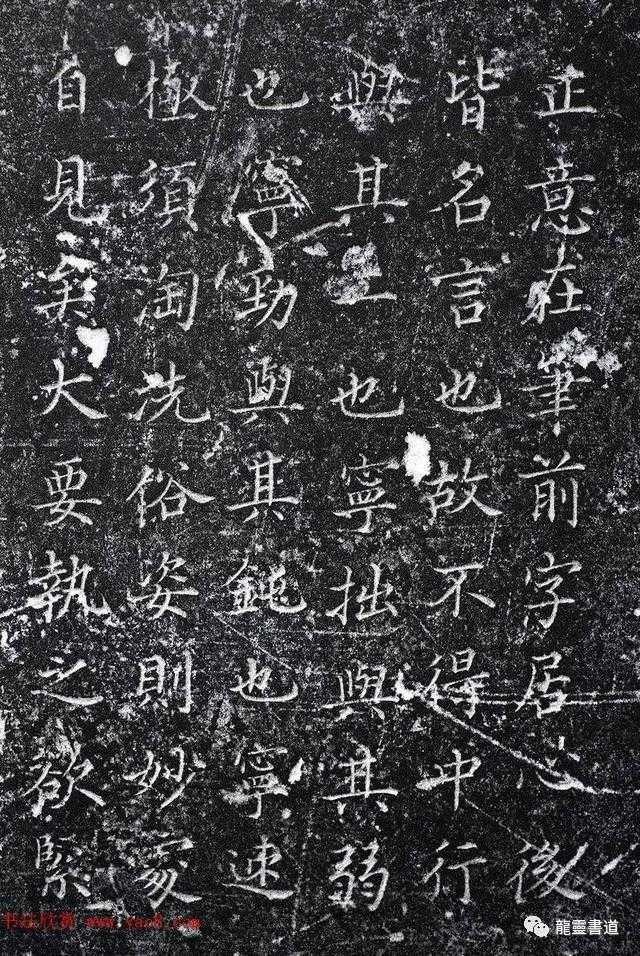 正意在筆前字居心後
皆名言也故不得中行
與其工也寧拙與其弱
也寧勁與其鈍也寧速
極須淘洗俗姿則妙處
自見矣大要執之欲緊
书法欣赏 www.yac8.com
龍靈書道